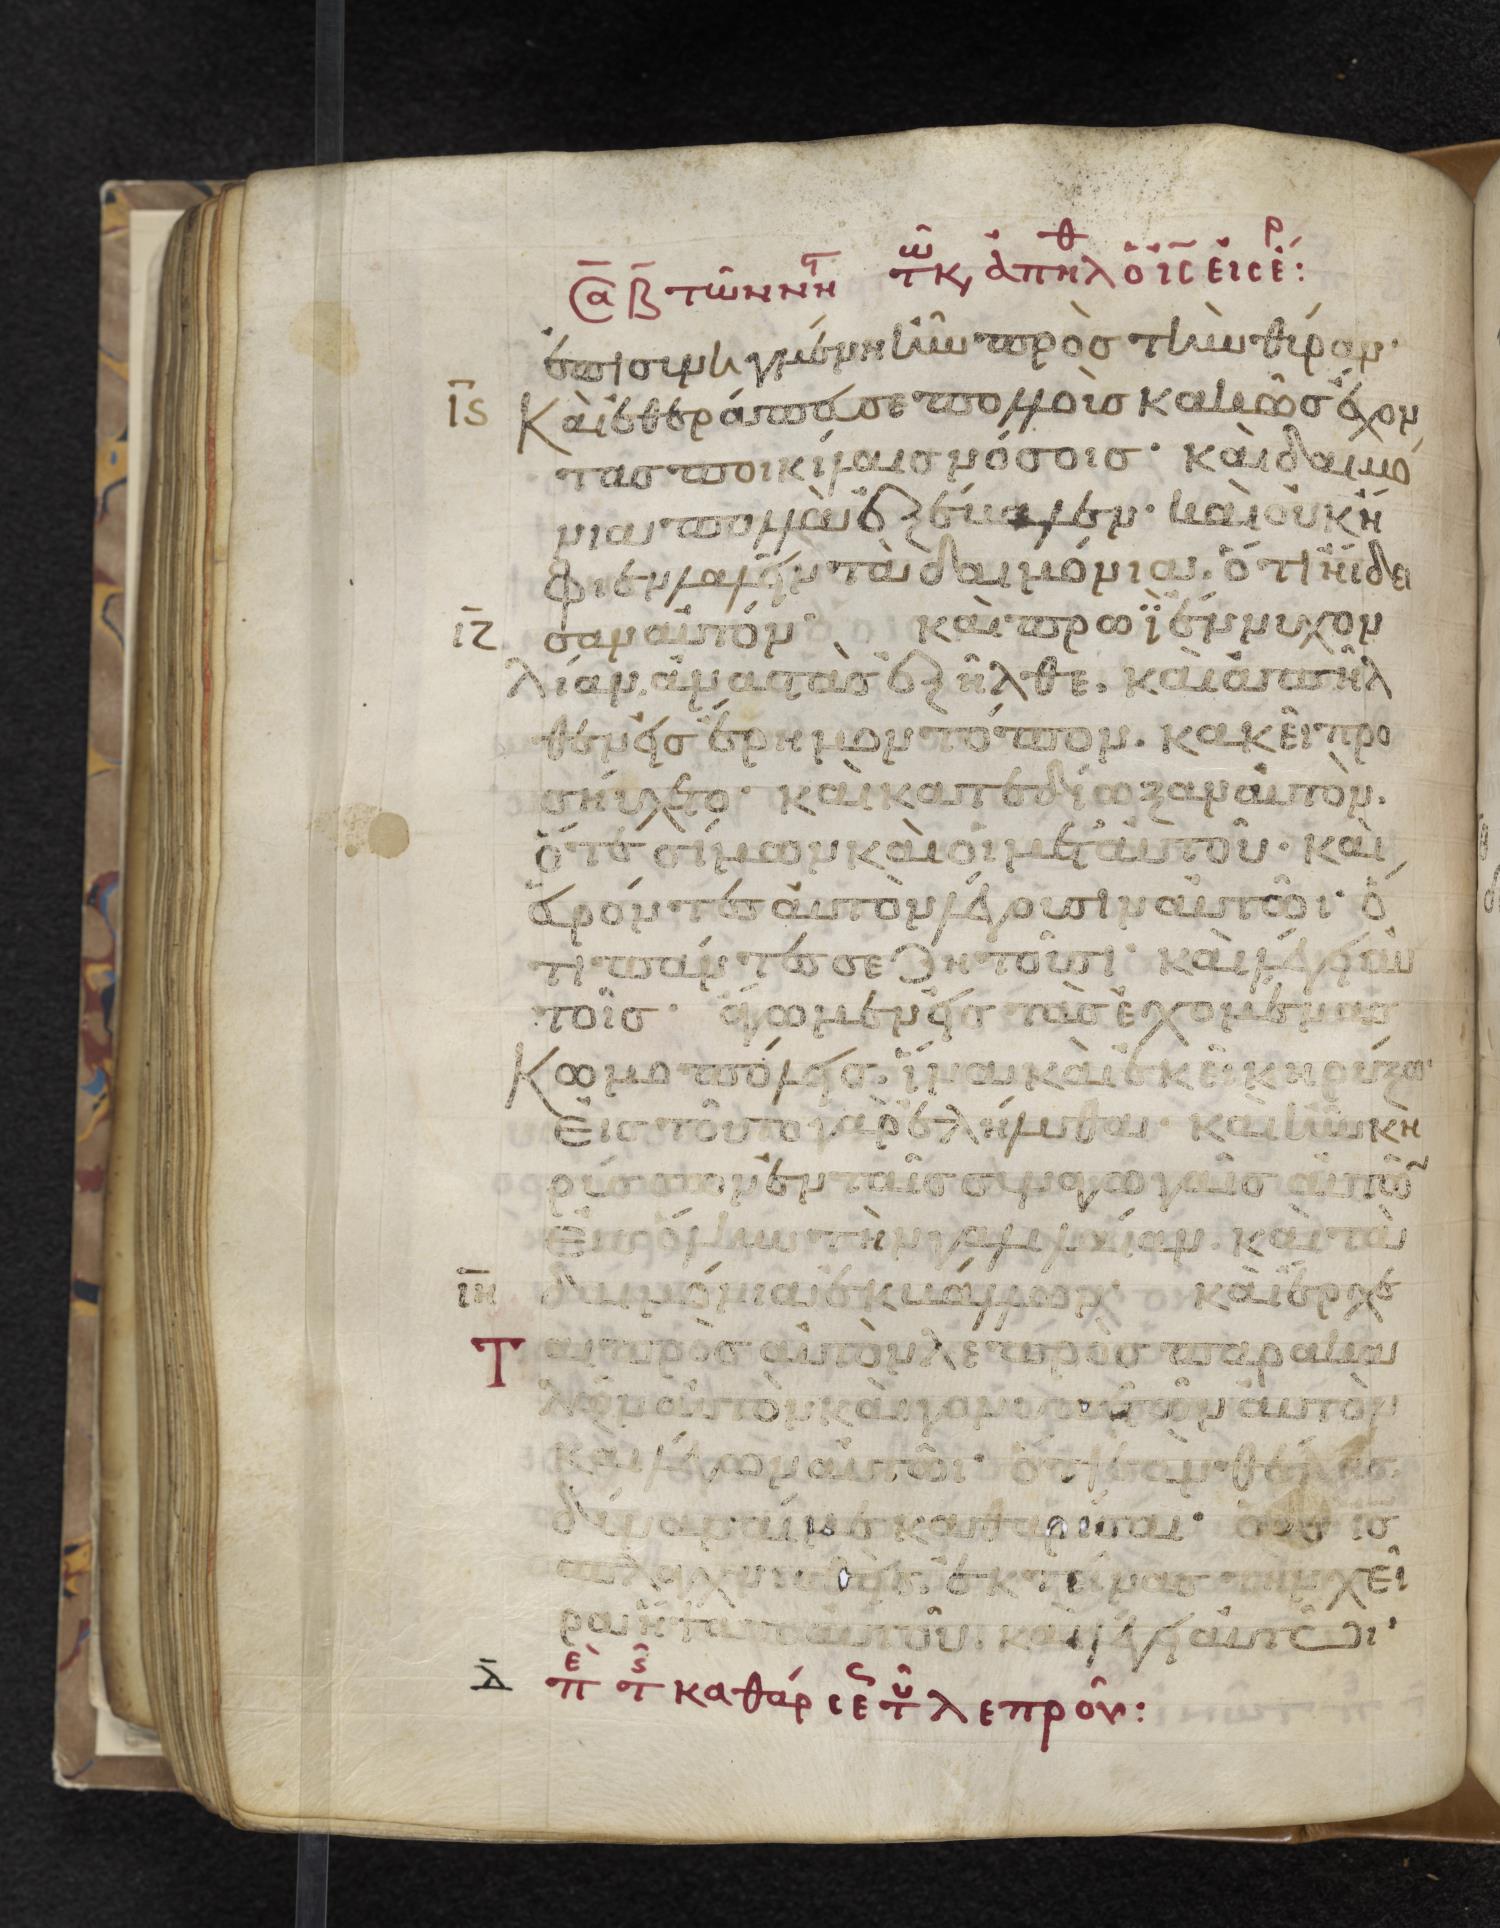 ἐπισυνηγμένη ἦν πρὸς τὴν θύραν·
ις Καὶ ἐθεράπευσε πολλοὺς κακῶς ἔχον
τας ποικίλαις νόσοις· καὶ δαιμό
νια πολλὰ ἐξέβαλεν· καὶ οὐκ ἤ
φιεν λαλεῖν τὰ δαιμόνια. ὅτι ἤιδει
ιζ σαν αὐτόν· καὶ πρωῒ ἔννυχον
λίαν, ἀναστὰς ἐξῆλθε. καὶ ἀπῆλ
θεν εἰς ἔρημον τόπον. κακεῖ προ
σηύχετο· καὶ κατεδίωξαν αὐτὸν.
ὅτε σίμων καὶ οἱ μετ' αὐτοῦ· καὶ
εὑρόντες αὐτὸν λέγουσιν αὐτῶι· ὅ
τι πάντες σε ζητοῦσι· καὶ λέγει αὐ
τοῖς· ἄγωμεν εἰς τὰς ἐχομένας
Κωμοπόλεις. ἵνα καὶ ἐκεῖ κηρύξω·
Εἰς τοῦτο γὰρ ἐλήλυθα· καὶ ἦν κη
ρύσσων ἐν ταῖς συναγωγαῖς αὐτῶν
Εἰς ὅλην τὴν γαλιλαίαν. καὶ τὰ
ιη δαιμόνια ἐκβάλλων· καὶ ἔρχε
Τ αι πρὸς αὐτὸν λεπρὸς παρακα
λῶν αὐτὸν καὶ γονυπετῶν αὐτὸν
καὶ λέγων αὐτῶι· ὅτι ἐὰν θέλῃς.
δύνασαί με καθαρίσαι· ὁ δὲ ις
σπλαγχνισθεὶς. ἐκτείνας τὴν χεῖ
ρα ἥψατο αὐτοῦ. καὶ λέγει αὐτῶι·
καθάρ λεπροῦ: